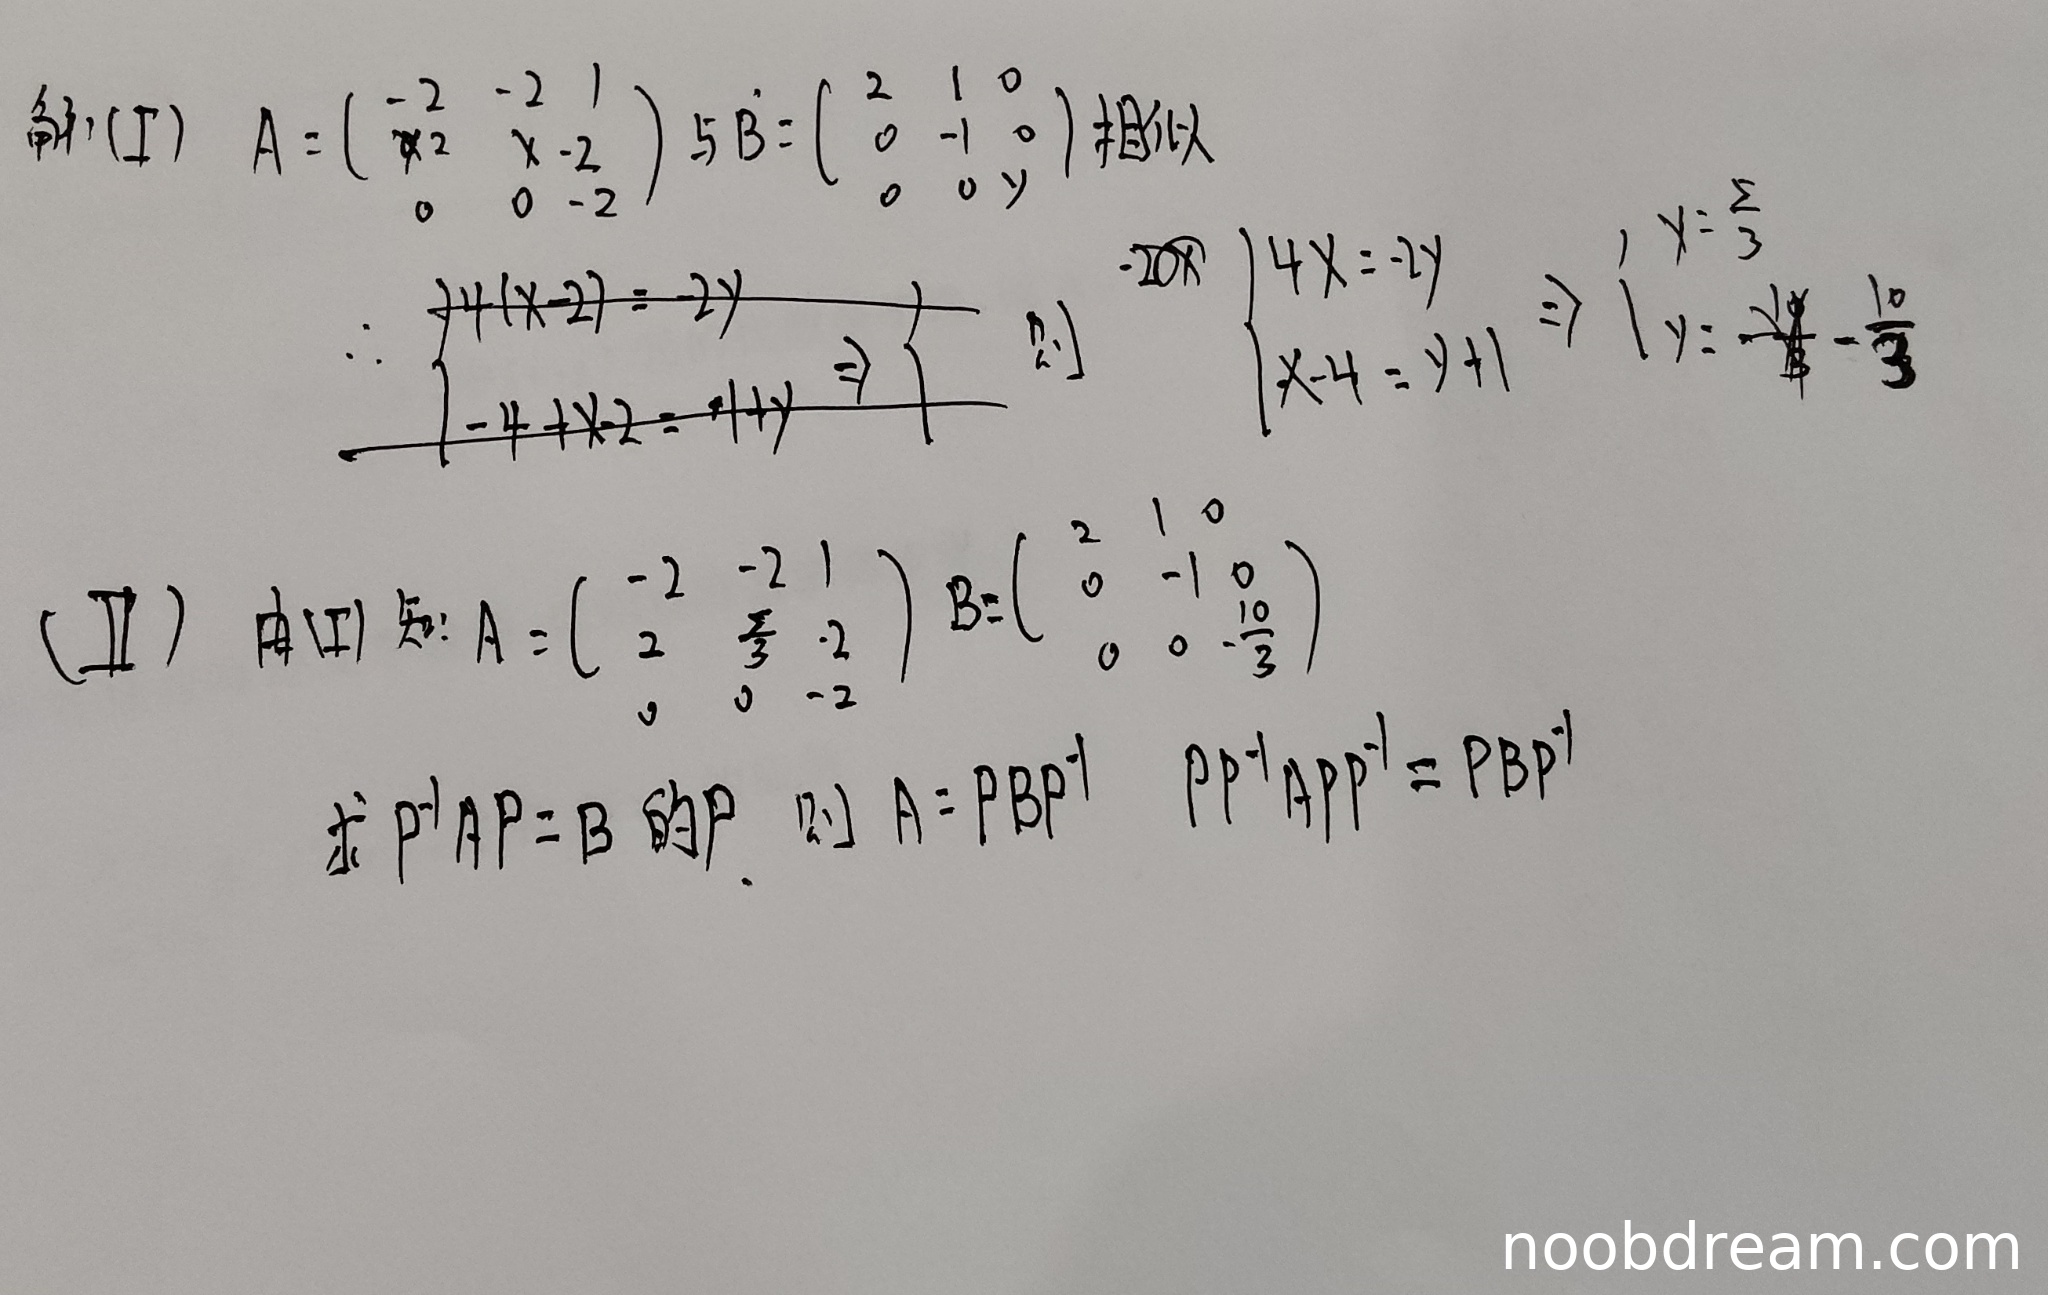 解:(I) A = ( -2 -2 1
2 x -2
0 0 -2 ) 与 B = ( 2 1 0
0 -1 0
0 0 y ) 相似
∴ { 4(x-2) = -2y
-4+x-2 = -1+y ⇒ {
则 { 4x = -2y
x-4 = y+1 ⇒ { x = 5/3
y = -10/3
(II) 由(I)知: A = ( -2 -2 1
2 5/3 -2
0 0 -2 ) B = ( 2 1 0
0 -1 0
0 0 -10/3 )
求 P⁻¹AP = B 的P. 则 A = PBP⁻¹ PP⁻¹APP⁻¹ = PBP⁻¹
noobdream.com